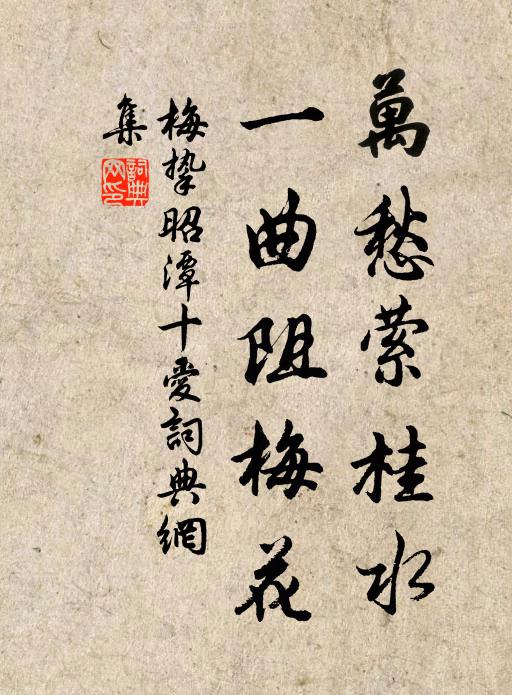 萬愁縈桂水
一曲阻梅花
梅摯昭潭十愛詞典網
集
詞典
网印